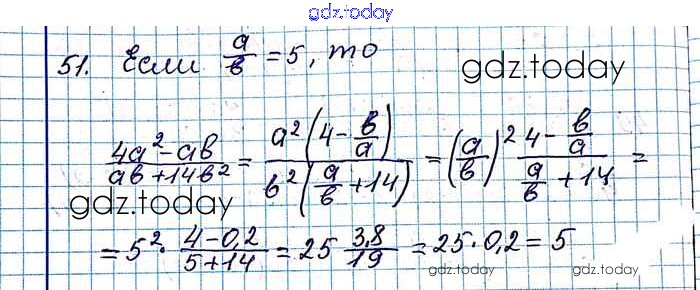 gdz.today
51. Если a/b = 5, то
gdz.today
(4a² - ab)/(ab + 14b²) = (a²(4 - b/a))/(b²(a/b + 14)) = (a/b)² (4 - b/a)/(a/b + 14) =
gdz.today
= 5² · (4 - 0,2)/(5 + 14) = 25 3,8/19 = 25 · 0,2 = 5
gdz.today gdz.today